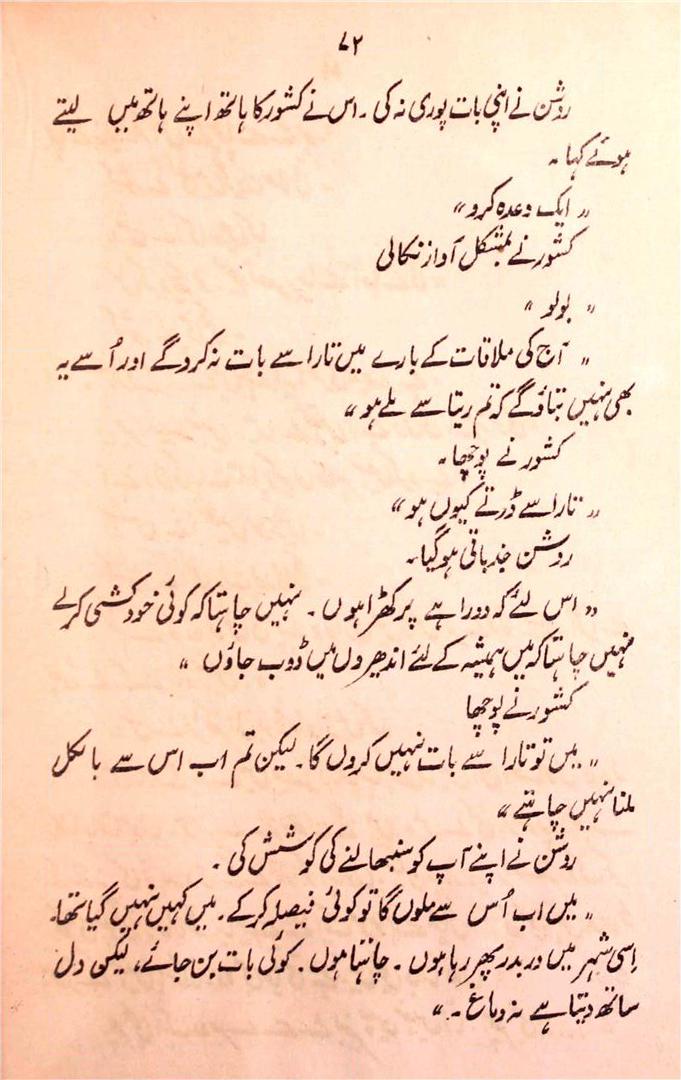 ۷۲
روشن نے اپنی بات پوری نہ کی۔ اس نے کشور کا ہاتھ اپنے ہاتھ میں لیتے
ہوئے کہا۔
"ایک وعدہ کرو"
کشور نے بمشکل آواز نکالی
"بولو"
"آج کی ملاقات کے بارے میں تارا سے بات نہ کرو گے اور اُسے یہ
بھی نہیں بتاؤ گے کہ تم ریتا سے ملے ہو"
کشور نے پوچھا۔
"تارا سے ڈرتے کیوں ہو"
روشن جذباتی ہو گیا۔
"اس لئے کہ دوراہے پر کھڑا ہوں۔ نہیں چاہتا کہ کوئی خودکشی کرلے
نہیں چاہتا کہ میں ہمیشہ کے لئے اندھیروں میں ڈوب جاؤں"
کشور نے پوچھا
"میں تو تارا سے بات نہیں کروں گا۔ لیکن تم اب اس سے بالکل
ملنا نہیں چاہتے"
روشن نے اپنے آپ کو سنبھالنے کی کوشش کی۔
"میں اب اُس سے ملوں گا تو کوئی فیصلہ کر کے۔ میں کہیں نہیں گیا تھا۔
اِسی شہر میں دربدر پھر رہا ہوں۔ چاہتا ہوں۔ کوئی بات بن جائے، لیکن دل
ساتھ دیتا ہے نہ دماغ۔"